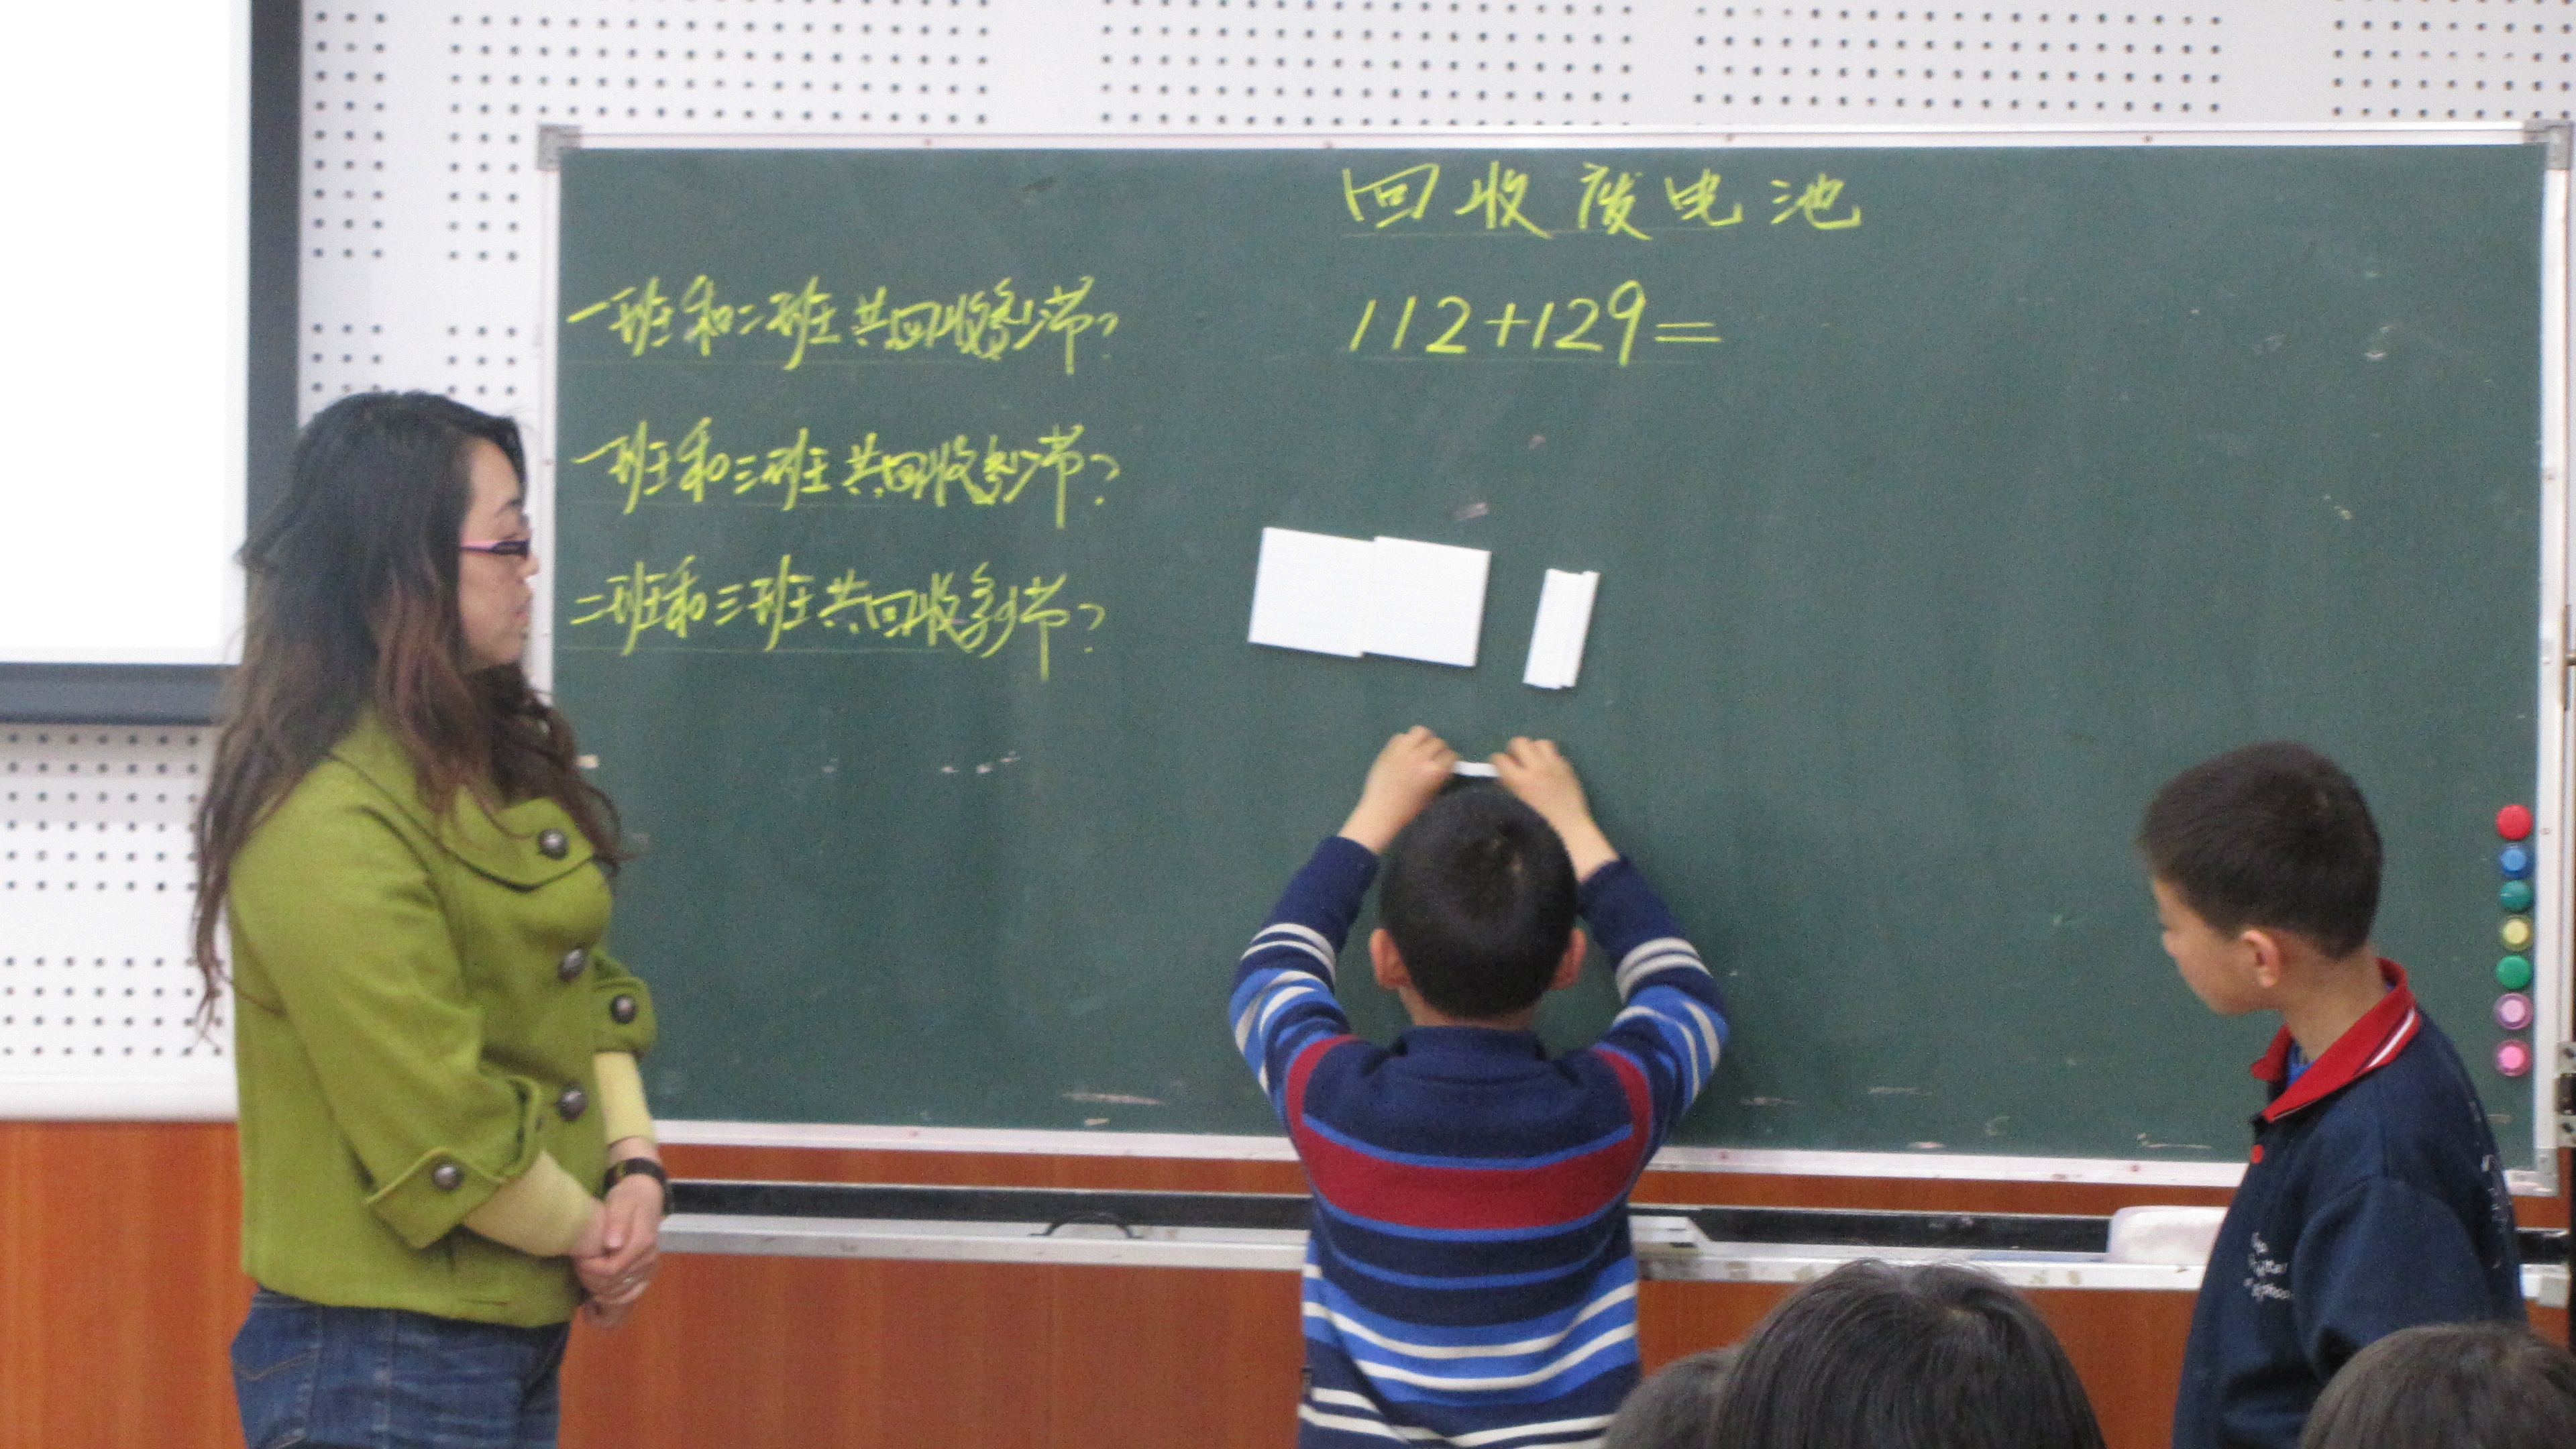 回收废电池
一班和二班共回收多少节?
112+129=
一班和三班共回收多少节?
二班和三班共回收多少节?